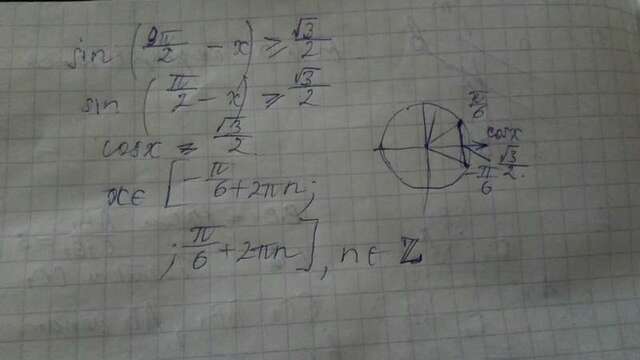 sin (9π/2 − x) ≥ √3/2
sin (π/2 − x) ≥ √3/2
cosx ≥ √3/2
x∈ [−π/6+2πn;
; π/6+2πn], n∈ ℤ
π/6
cosx
√3/2
−π/6